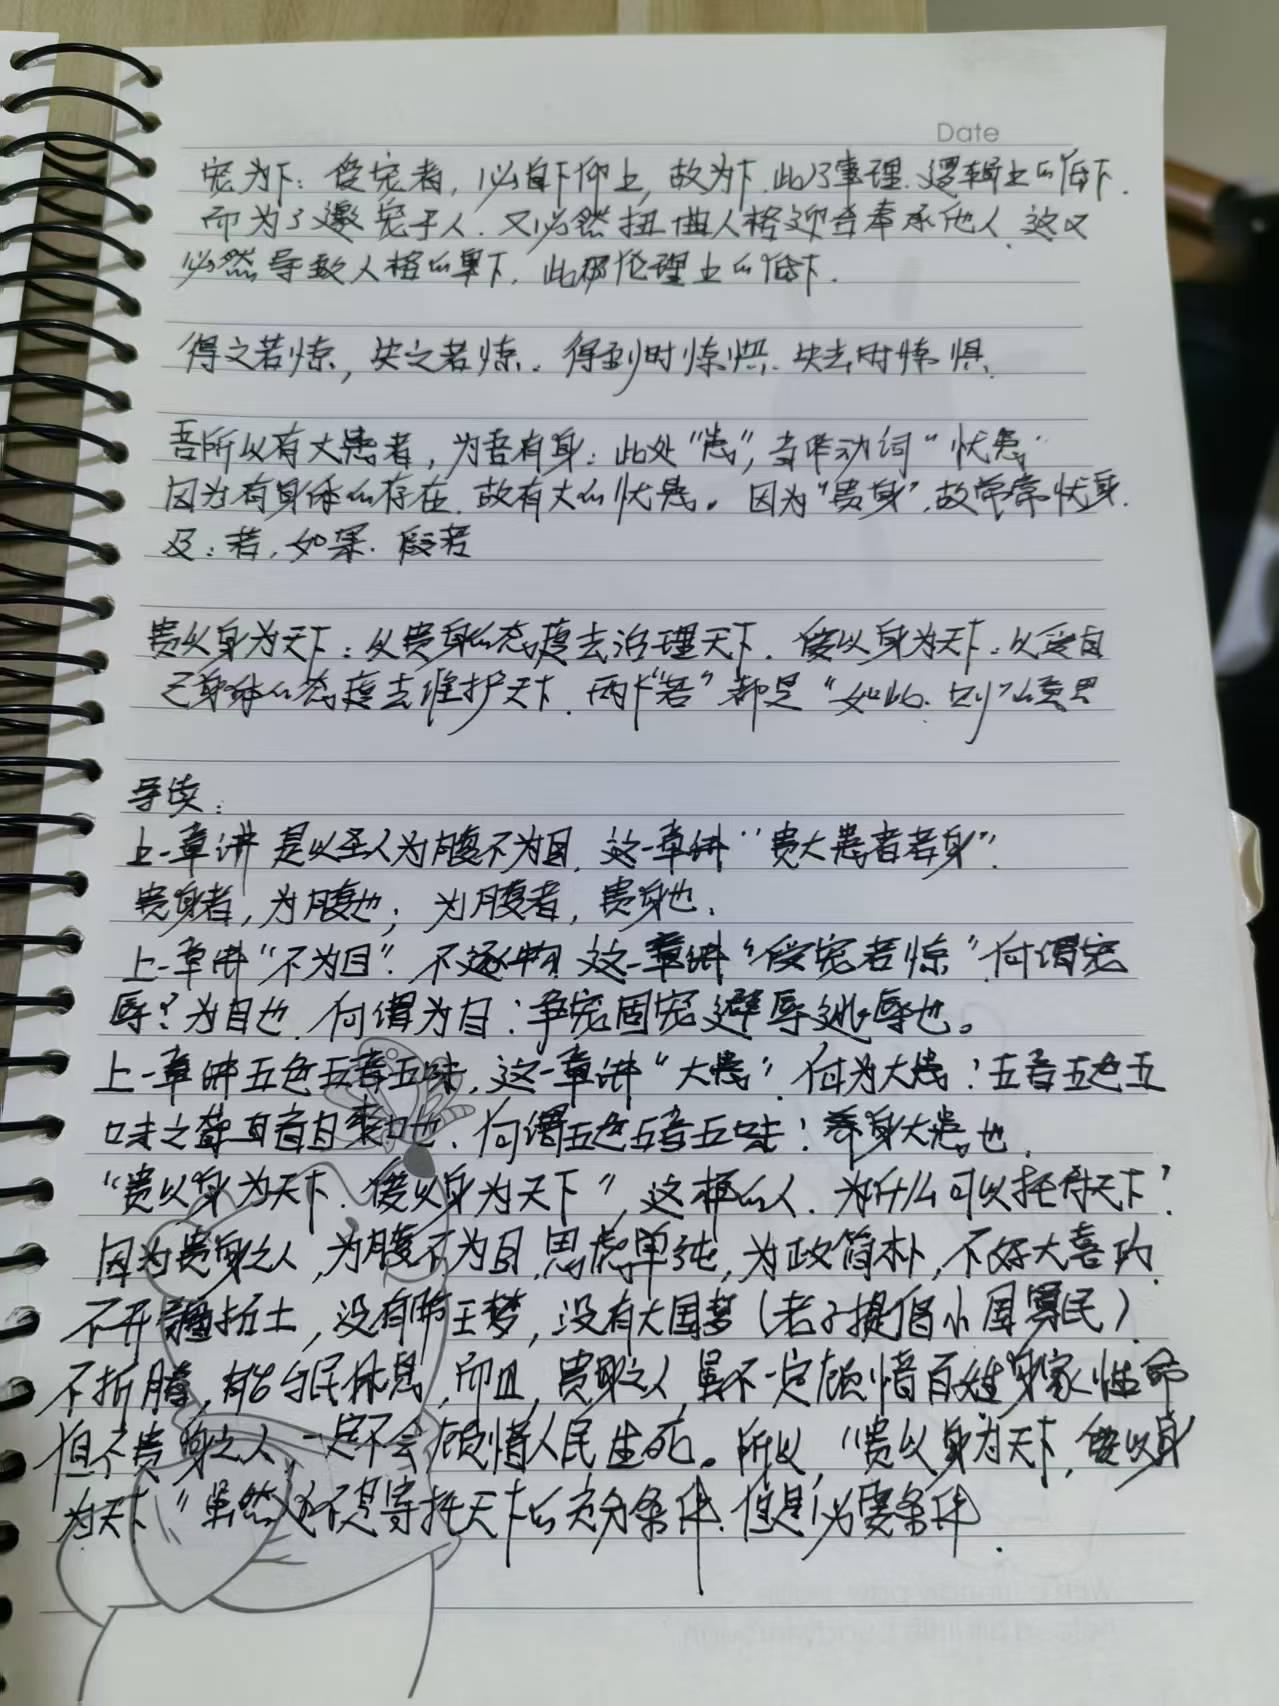 Date
宠为下：受宠者，必自下仰上，故为下。此乃事理、逻辑上的低下.
而为了邀宠于人，又必然扭曲人格迎合奉承他人，这又
必然导致人格的卑下，此那伦理上的低下.
得之若惊，失之若惊。得到时惊惧，失去时惊惧.
吾所以有大患者，为吾有身：此处“患”，当作动词“忧患”
因为有身体的存在，故有大的忧患。因为“贵身”，故常常忧身.
及：若，如果，假若
贵以身为天下：以贵身的态度去治理天下. 爱以身为天下：以爱自
己身体的态度去维护天下. 两个“若”都是“如此，则”的意思
导读：
上一章讲是以圣人为腹不为目，这一章讲“贵大患者若身”.
贵身者，为腹也；为腹者，贵身也；
上一章讲“不为目”，不逐物. 这一章讲“受宠若惊”何谓宠
辱？为目也. 何谓为目：争宠固宠避辱逃辱也。
上一章讲五色五音五味，这一章讲“大患”. 何为大患：五音五色五
味之聋耳盲目爽口也. 何谓五色五音五味：养身大患也.
“贵以身为天下，爱以身为天下”，这样的人，为什么可以托付天下？
因为贵身之人，为腹不为目，思虑单纯，为政简朴，不好大喜功，
不开疆拓土，没有帝王梦，没有大国梦（老子提倡小国寡民）.
不折腾，能与民休息，而且，贵身之人，虽不一定顾惜百姓身家性命
但不贵身之人，一定不会顾惜人民生死。所以，“贵以身为天下，爱以身
为天下”虽然不是寄托天下的充分条件，但是必要条件.